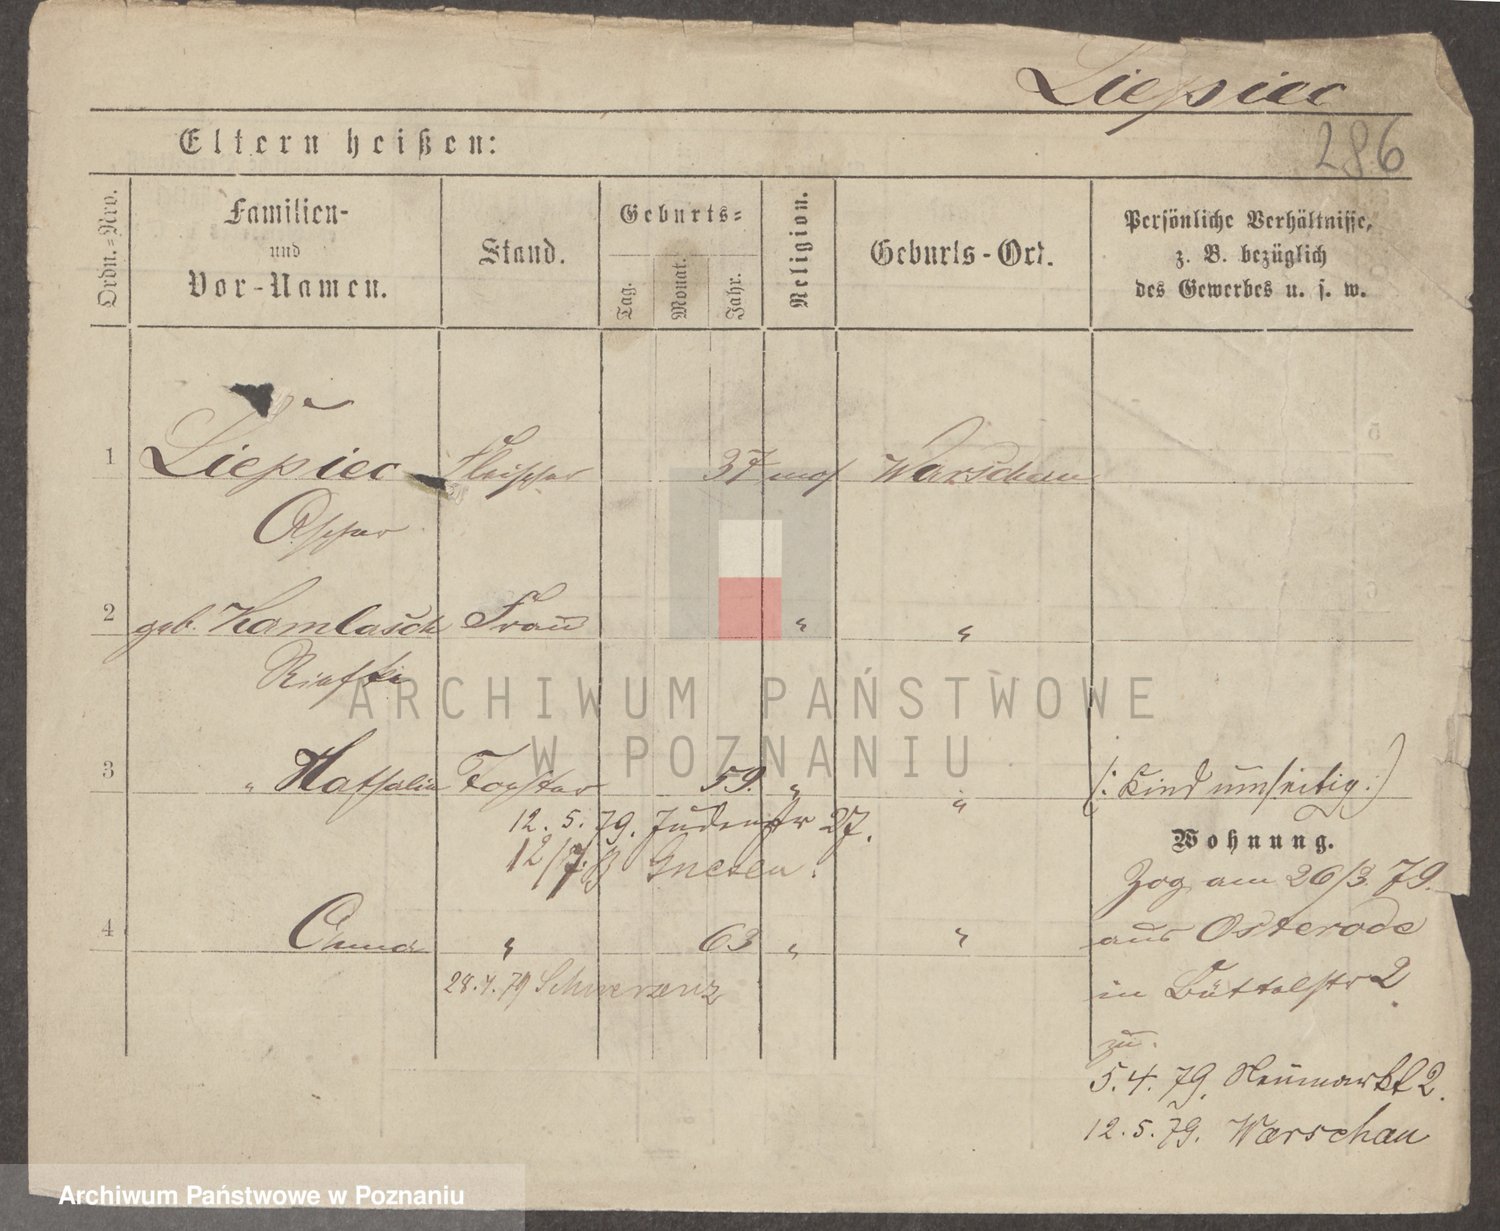 Liepiec
286
Eltern heißen:
Ordn.=Nro.
Familien-
und
Vor-Namen.
Stand.
Geburts=
Tag.
Monat.
Jahr.
Religion.
Geburts-Ort.
Persönliche Verhältnisse,
z. B. bezüglich
des Gewerbes u. s. w.
1 Liepiec Fleischer 37 mos Warschau
Ascher
2 geb. Kamlasch Frau " "
3 " Nathalia Tochter 59. " " (: Kind umseitig :)
12. 5. 79. Judenstr 27.
Gnesen.
Wohnung.
Zog am 26/3. 79.
4 Anna " 63 " "
aus Osterode
28. 4. 79 Schwersenz
in Büttelstr 2
zu.
5. 4. 79. Neumarkt 2.
12. 5. 79. Warschau
ARCHIWUM PAŃSTWOWE
W POZNANIU
Archiwum Państwowe w Poznaniu